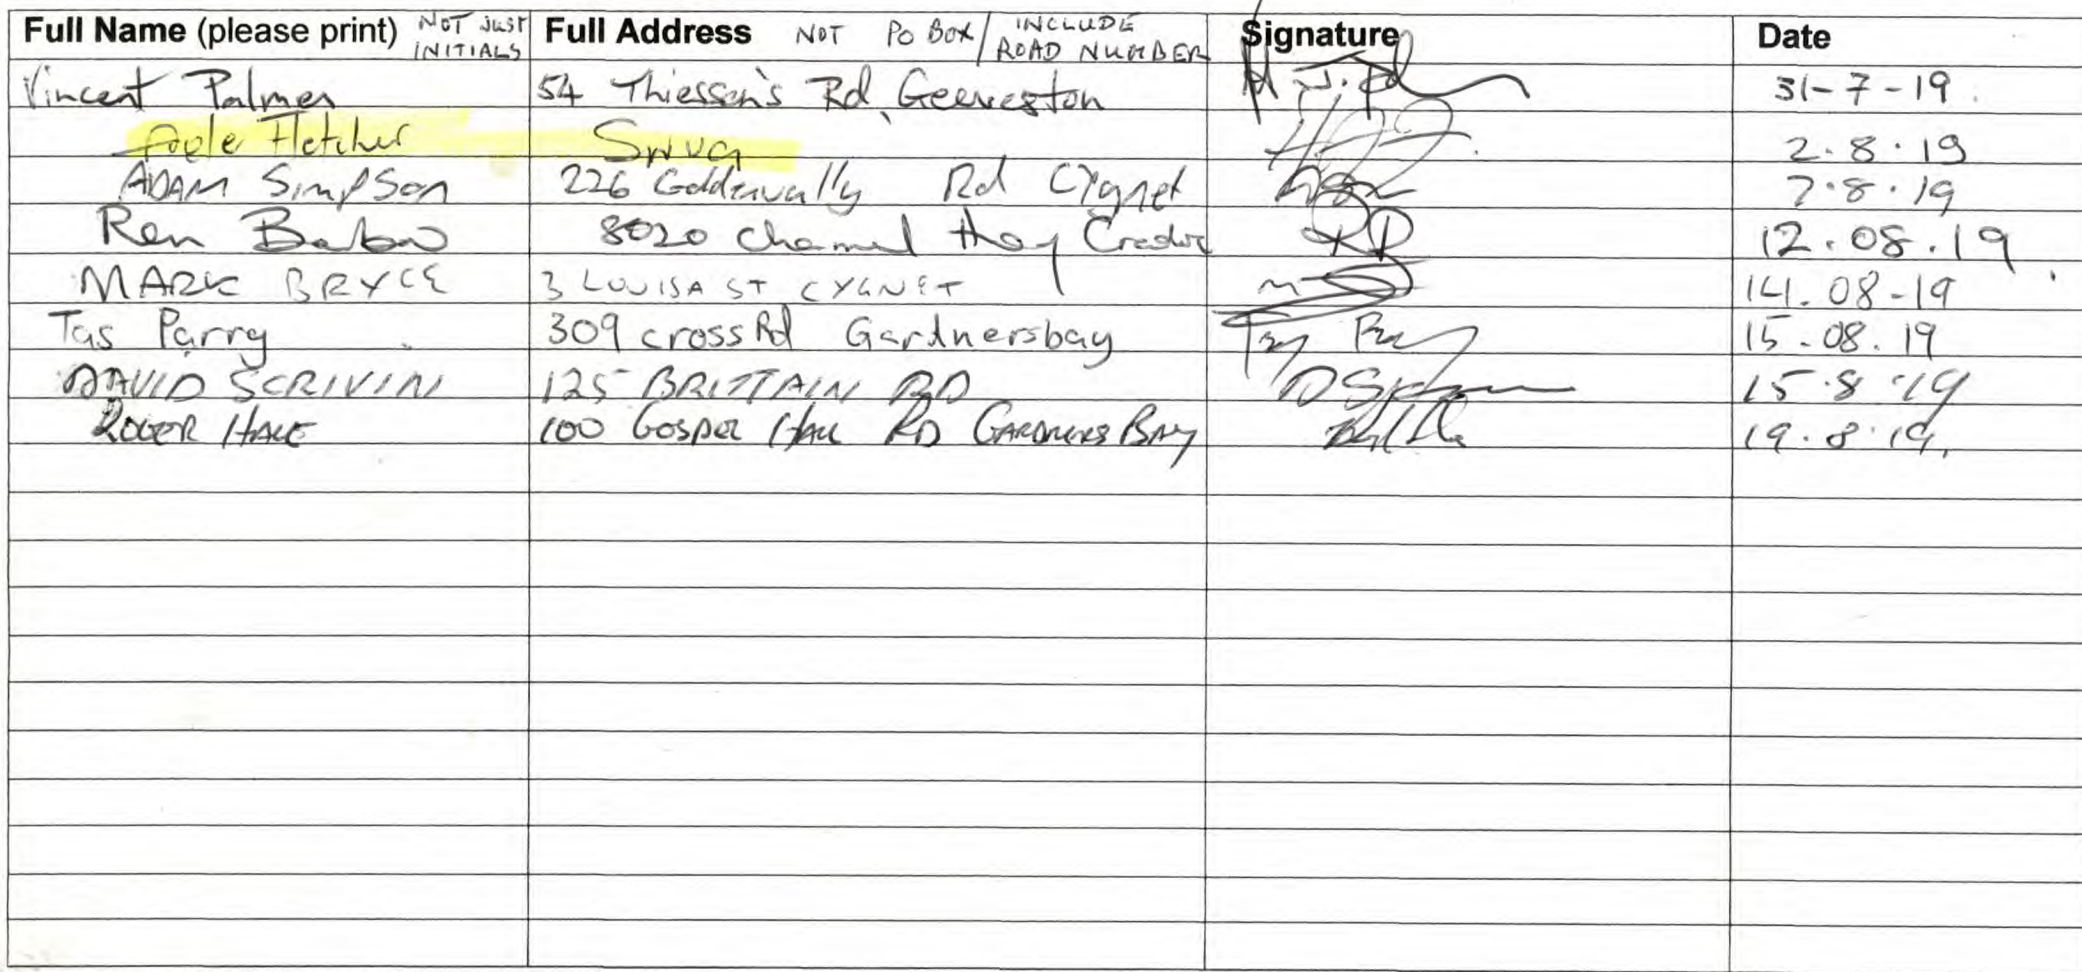 Full Name (please print) NOT JUST INITIALS Full Address NOT PO BOX / INCLUDE ROAD NUMBER Signature Date
Vincent Palmer 54 Thiessen's Rd, Geeveston 31-7-19
Fletcher 2.8.19
ADAM Simpson 226 Rd Cygnet 7.8.19
Ren 8020 Channel Hwy Cradoc 12.08.19
MARK BRYCE 3 LOUISA ST CYGNET 14.08-19
Tas Parry 309 cross Rd Gardnersbay 15.08.19
DAVID SCRIVIN 125 BRITTAIN RD 15.8.19
ROGER HALE 100 GOSPEL HALL RD GARDNERS BAY 19.8.19.